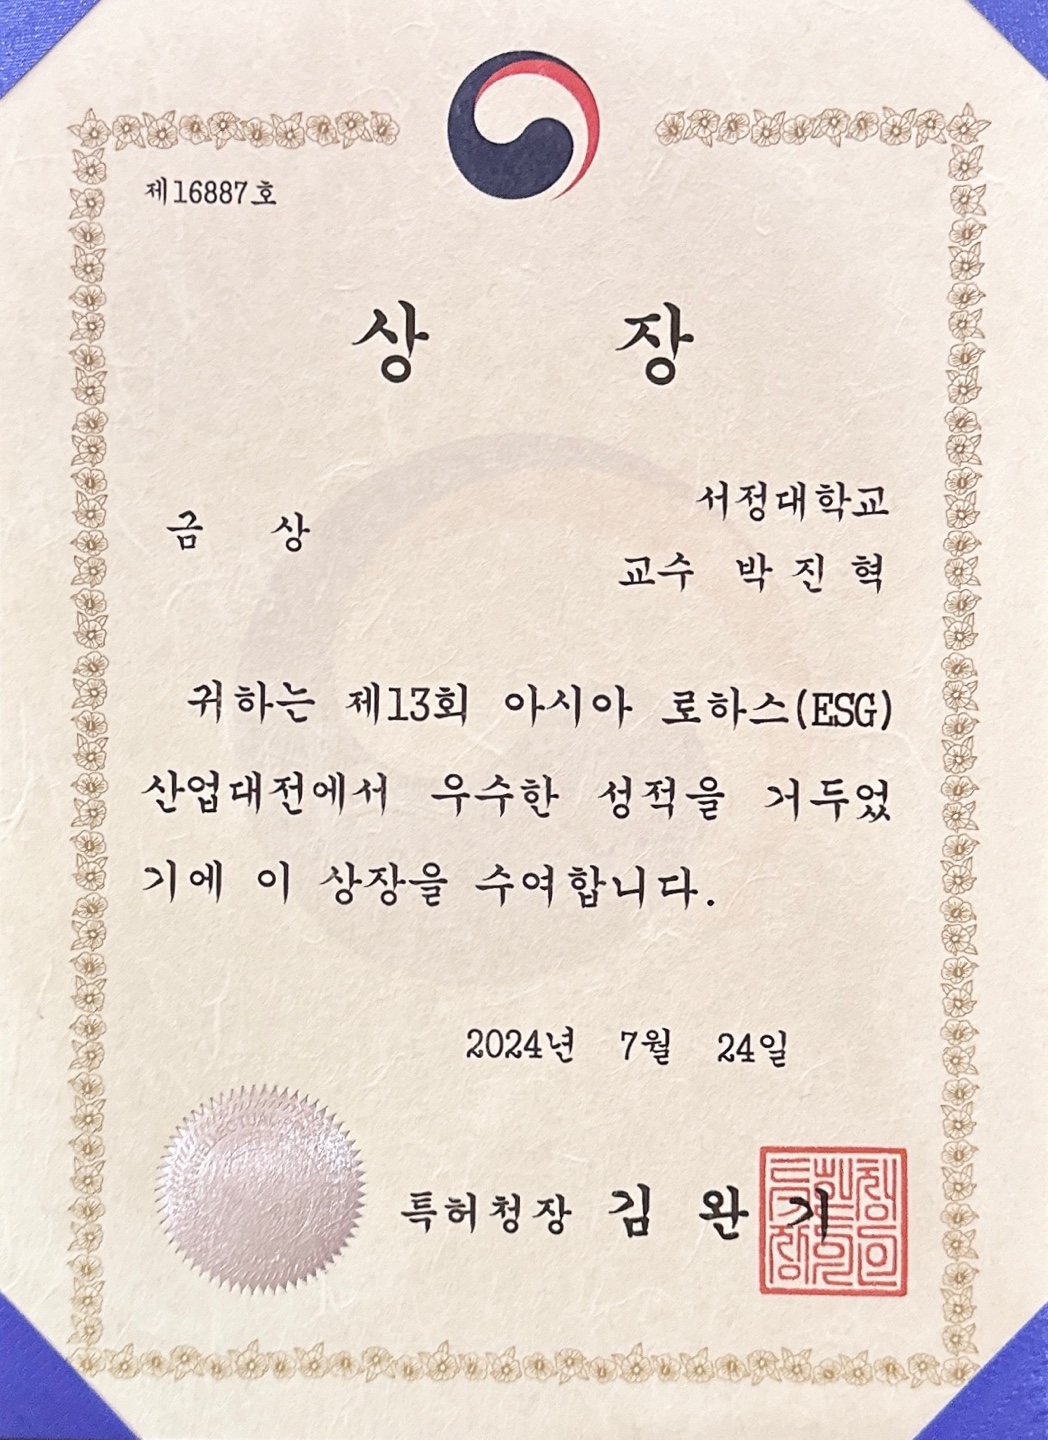 제16887호
상 장
금 상
서정대학교
교수 박 진 혁
귀하는 제13회 아시아 로하스(ESG)
산업대전에서 우수한 성적을 거두었
기에 이 상장을 수여합니다.
2024년 7월 24일
특허청장 김 완 기